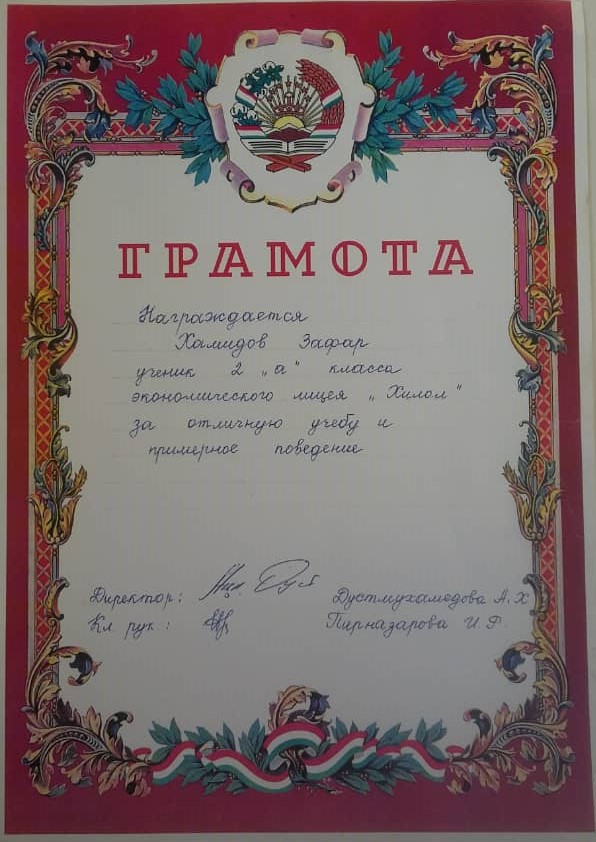 ГРАМОТА
Награждается
Хамидов Зафар
ученик 2 „а" класса
экономического лицея „Хилол"
за отличную учебу и
примерное поведение
Директор: Дустмухамедова А.Х
Кл рук: Пирназарова И.Ф.